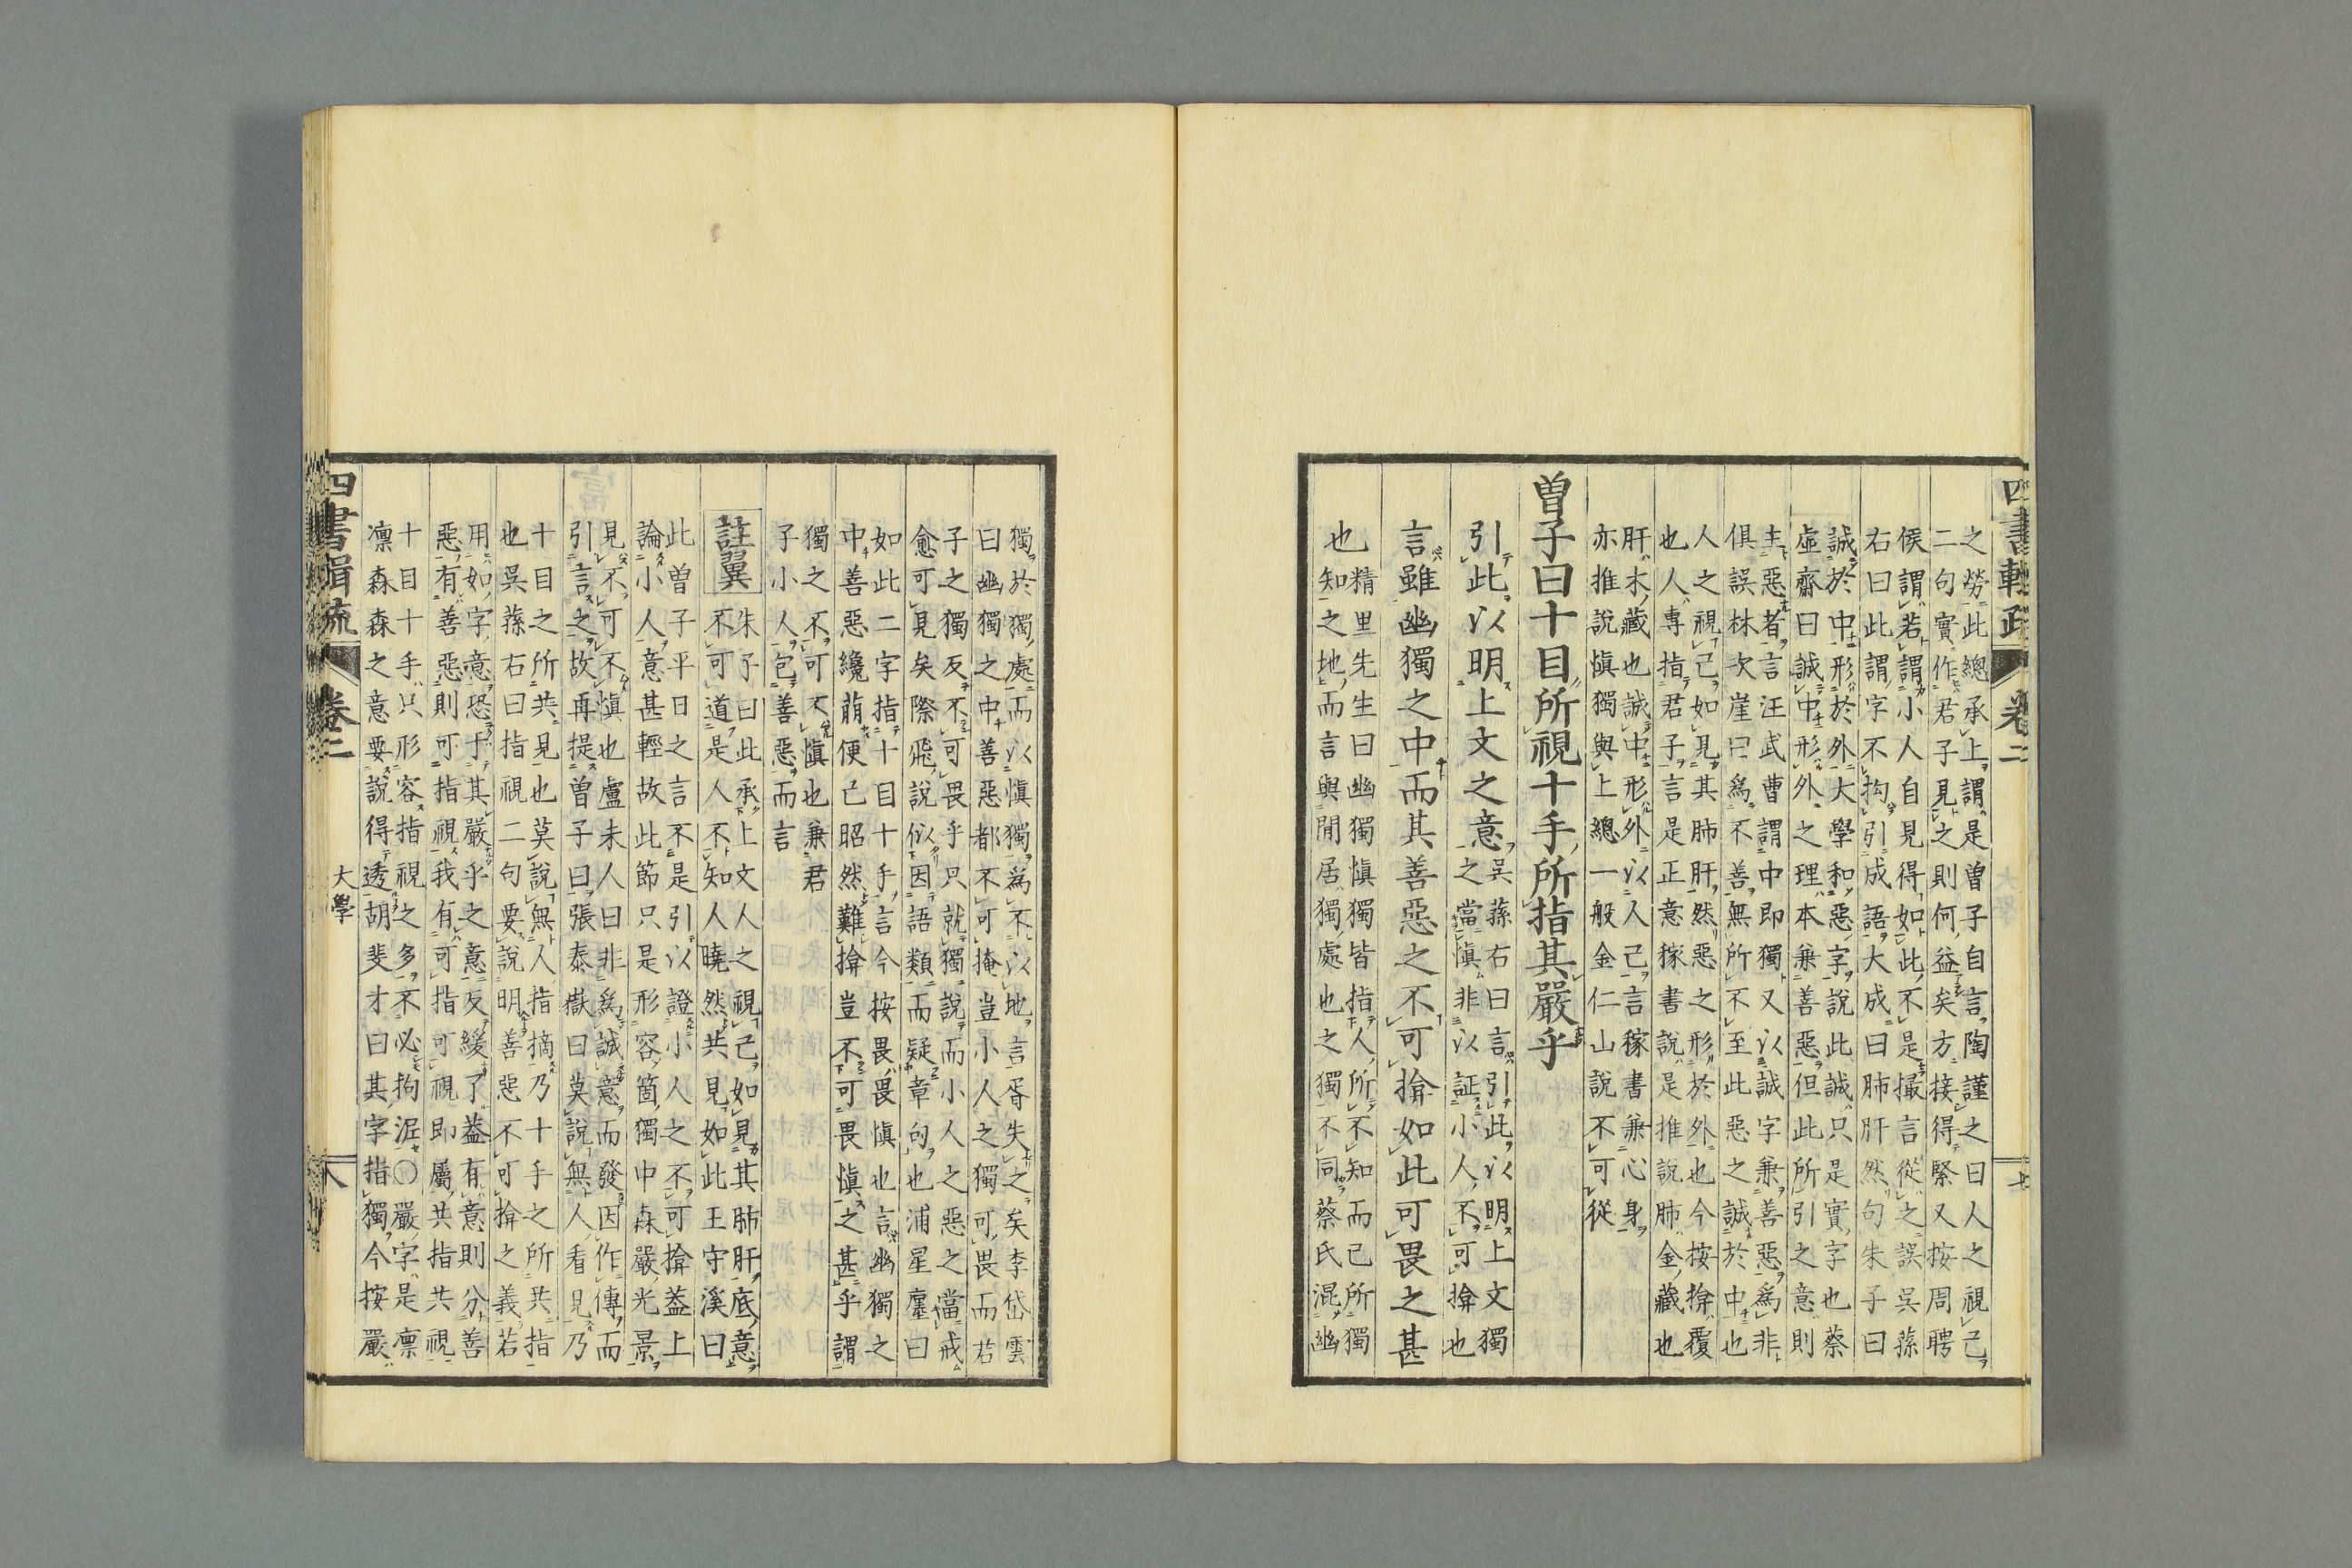 四書輯疏 卷二 七
之勞此總承上謂是曽子自言陶謹之曰人之視己
二句實作君子見之則何益矣方接得緊又按周聘
侯謂若謂小人自見得如此不是撮言從之誤吳蓀
右曰此謂字不拘引成語大成曰肺肝然句朱子曰
誠於中形於外大學和惡字說此誠只是實字也蔡
虛齋曰誠中形外之理本兼善惡但此所引之意則
主惡者言汪武曹謂中即獨又以誠字兼善惡爲非
俱誤林次崖曰爲不善無所不至此惡之誠於中也
人之視己如見其肺肝然惡之形於外也今按揜覆
也人專指君子言是正意稼書說是推說肺金藏也
肝木藏也誠中形外以人己言稼書兼心身
亦推說愼獨與上總一般金仁山說不可從
曽子曰十目所視十手所指其嚴乎
引此以明上文之意
吳蓀右曰言引此以明上文獨
之當愼非以証小人不可揜也
言雖幽獨之中而其善惡之不可揜如此可畏之甚
也
精里先生曰幽獨愼獨皆指人所不知而己所獨
知之地而言與閒居獨處也之獨不同蔡氏混幽
獨於獨處而以愼獨爲不以地言胥失之矣李岱雲
曰幽獨之中善惡都不可掩豈小人之獨可畏而若
子之獨反不可畏乎只就獨說而小人之惡之當戒
愈可見矣際飛說似因語類而疑章句也浦星㕓曰
如此二字指十目十手言今按畏畏愼也言幽獨之
中善惡纔萠便已昭然難揜豈不可畏愼之甚乎謂
獨之不可不愼也兼君
子小人包善惡而言
註翼
朱子曰此承上文人之視己如見其肺肝底意
不可道是人不知人曉然共見如此王守溪曰
此曽子平日之言不是引以證小人之不可揜益上
論小人意甚輕故此節只是形容箇獨中森嚴光景
見不可不愼也盧未人曰非爲誠意而發因作傳而
引言之故再提曽子曰張泰嶽曰莫說無人看見乃
十目之所共見也莫說無人指摘乃十手之所共指
也吳蓀右曰指視二句要說明善惡不可揜之義若
用如字意恐于其嚴乎之意反緩了益有意則分善
惡有善惡則可指視我有可指可視即屬共指共視
十目十手只形容指視之多不必拘泥〇嚴字是凛
凛森森之意要說得透胡斐才曰其字指獨今按嚴
四書輯疏 卷二 大學 八